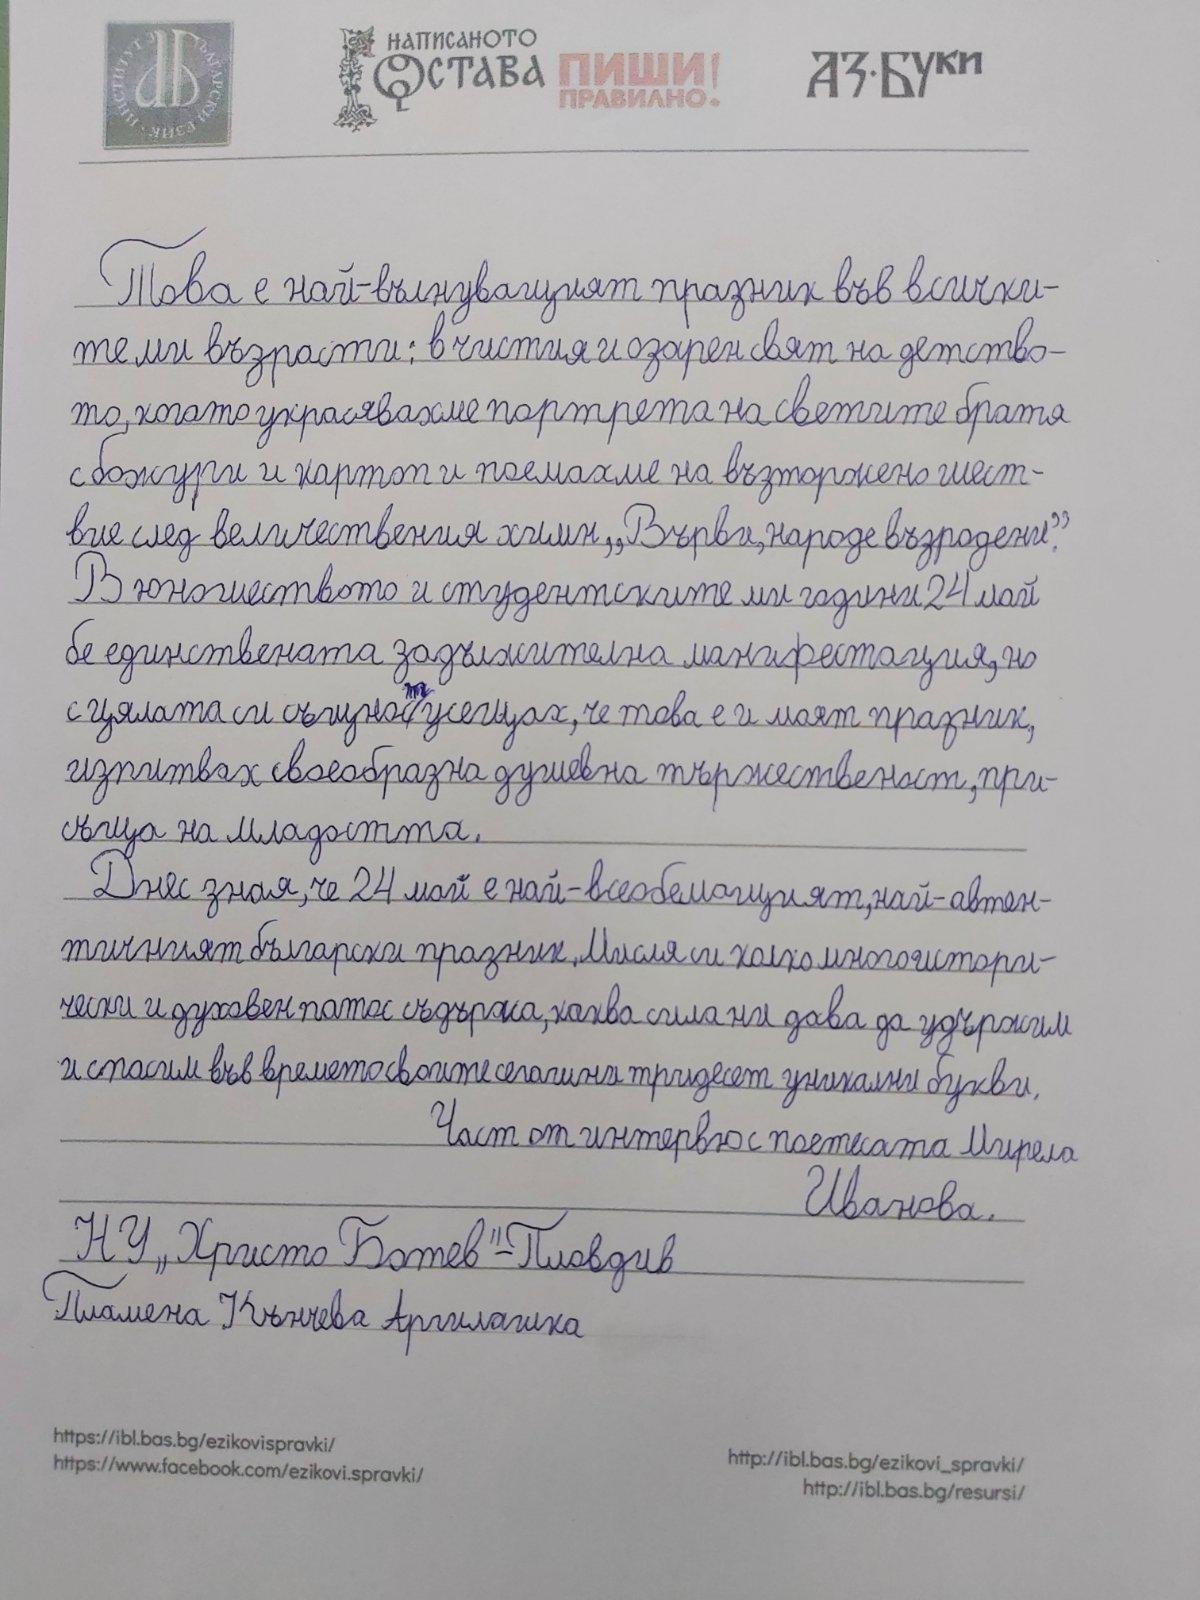 ИНСТИТУТ ЗА БЪЛГАРСКИ ЕЗИК
НАПИСАНОТО
ОСТАВА
ПИШИ
ПРАВИЛНО!
АЗ·БУКИ
Това е най-вълнуващият празник във всички-
те ми възрасти: в чистия и озарен свят на детство-
то, когато украсявахме портрета на светите братя
с божури и картоп и поемахме на възторжено шест-
вие след величествения химн „Върви, народе възродени“.
В юношеството и студентските ми години 24 май
бе единствената задължителна манифестация, но
с цялата си същност усещах, че това е и моят празник,
изпитвах своеобразна душевна тържественост, при-
съща на младостта.
Днес зная, че 24 май е най-всеобемащият, най-автен-
тичният български празник. Мисля си колко много истори-
чески и духовен патос съдържа, каква сила ни дава да удържим
и спасим във времето своите сегашни тридесет уникални букви.
Част от интервю с поетесата Мирела
Иванова.
НУ „Христо Ботев“ – Пловдив
Пламена Кънчева Аргилашка
https://ibl.bas.bg/ezikovispravki/
https://www.facebook.com/ezikovi.spravki/
http://ibl.bas.bg/ezikovi_spravki/
http://ibl.bas.bg/resursi/